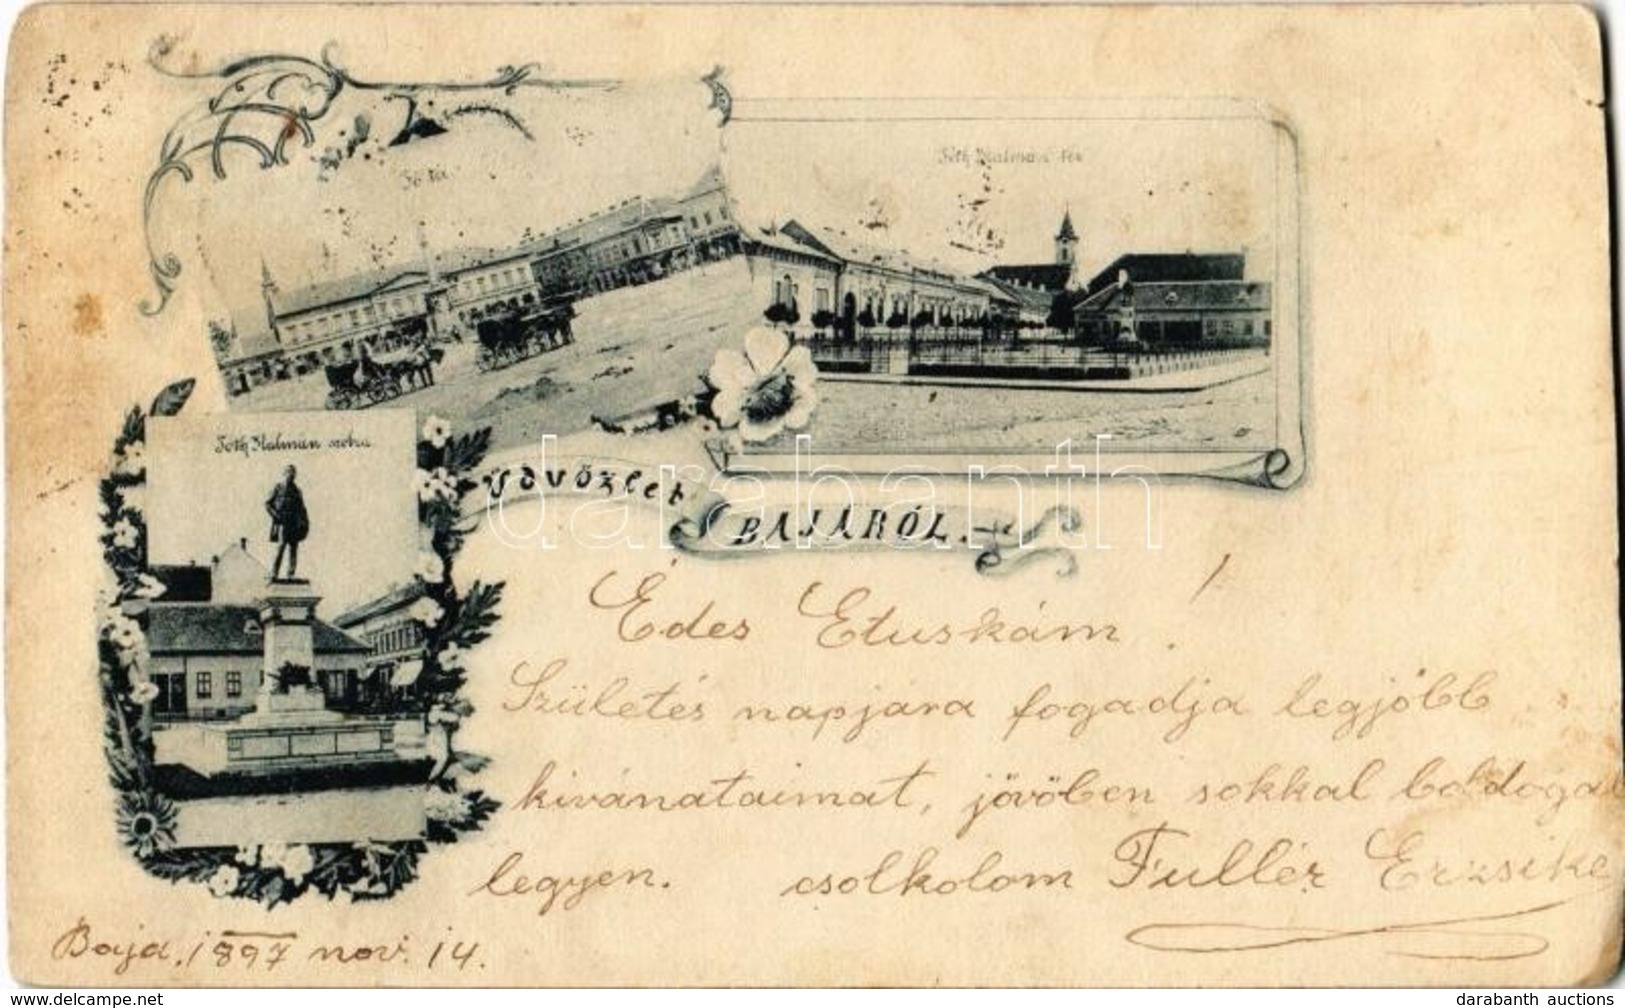 Fő tér
Tóth Kálmán tér
Tóth Kálmán szobra
ÜDVÖZLET
BAJÁRÓL.
darabanth
Édes Etuskám!
Születés napjára fogadja legjóbb
kivánataimat, jövöben sokkal boldogabb
legyen. csolkolom Fullér Erzsike
Baja. 1897 nov. 14.
darabanth auctions